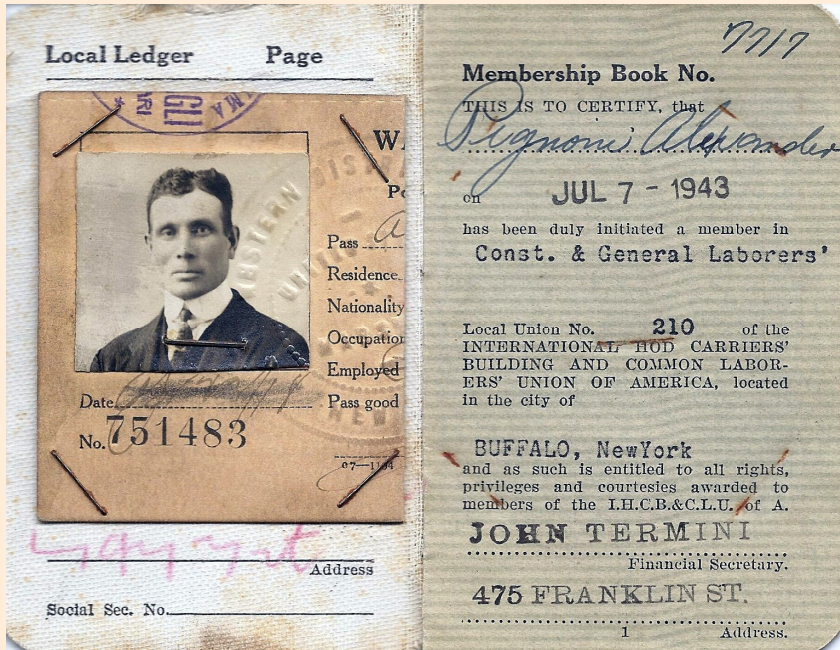 Local Ledger Page
GLI
ARI
W
Po
Pass
Residence
Nationality
Occupation
Employed
Date
Pass good
No. 751483
Address
Social Sec. No.
7717
Membership Book No.
THIS IS TO CERTIFY, that
Pugnoni Alexander
on JUL 7 - 1943
has been duly initiated a member in
Const. & General Laborers'
Local Union No. 210 of the
INTERNATIONAL HOD CARRIERS'
BUILDING AND COMMON LABOR-
ERS' UNION OF AMERICA, located
in the city of
BUFFALO, NewYork
and as such is entitled to all rights,
privileges and courtesies awarded to
members of the I.H.C.B.&C.L.U. of A.
JOHN TERMINI
Financial Secretary.
475 FRANKLIN ST.
1 Address.